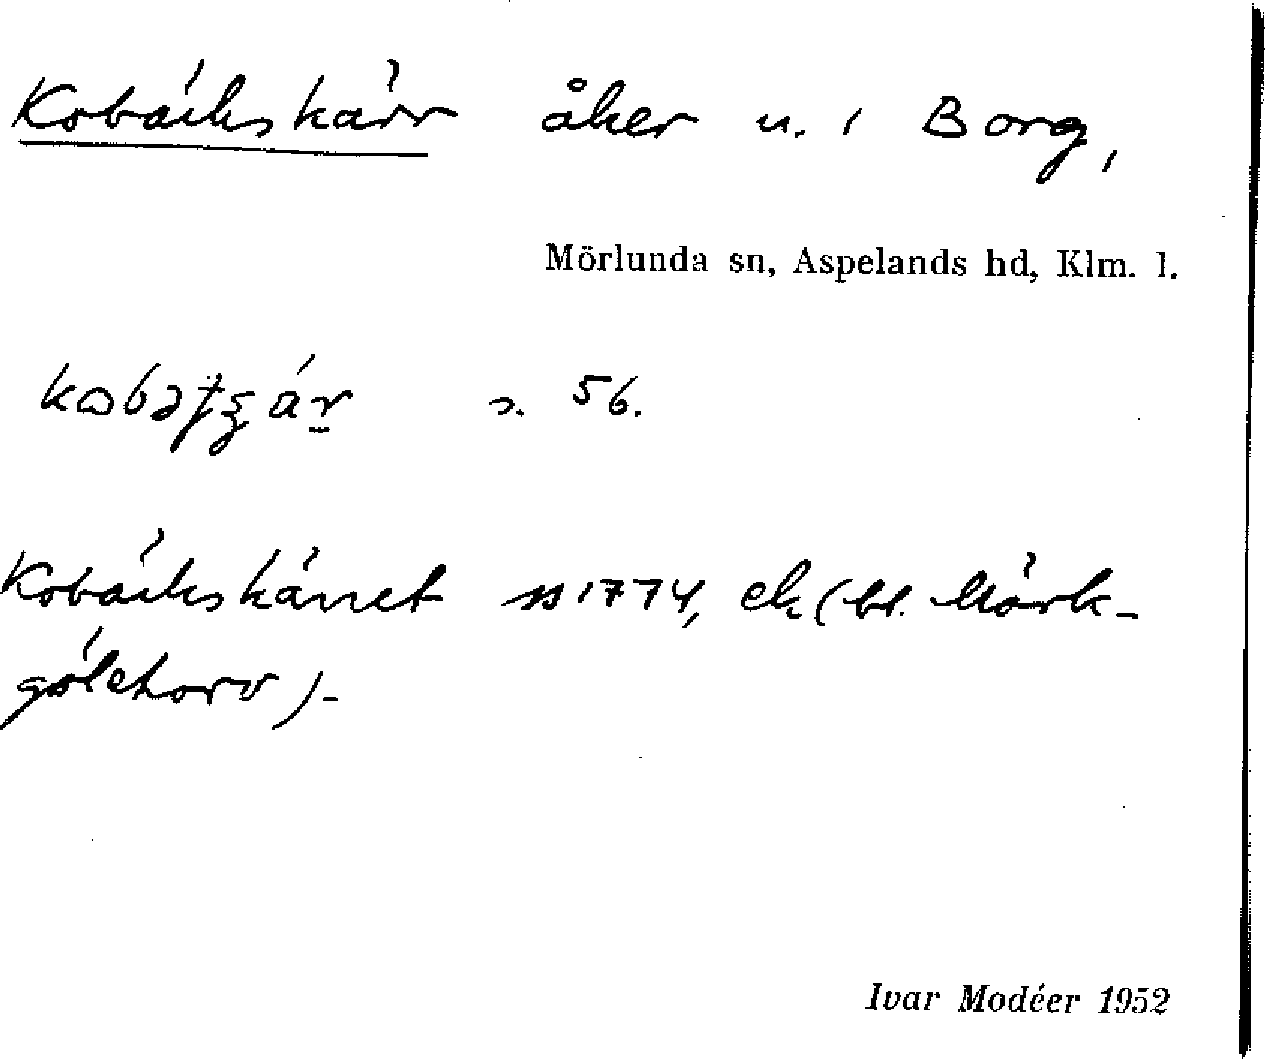 Kobäckskärr åker n. i Borg,
Mörlunda sn, Aspelands hd, Klm. l.
s. 56.
Kobäckskärret 1774, ek (bl. Mörk-
göletorv).
Ivar Modéer 1952